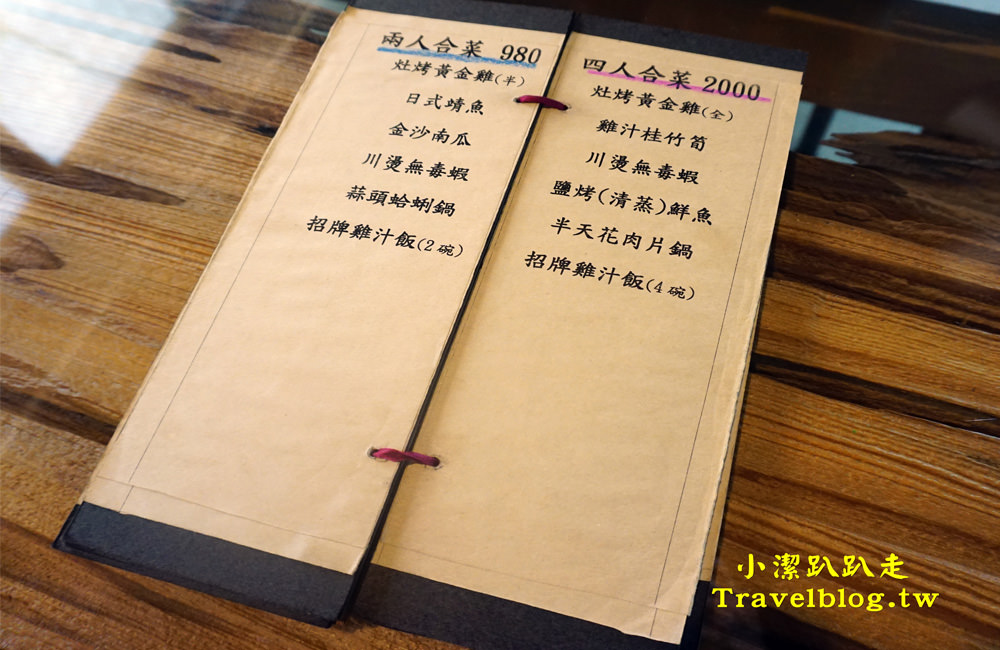 兩人合菜 980
灶烤黃金雞(半)
日式鯖魚
金沙南瓜
川燙無毒蝦
蒜頭蛤蜊鍋
招牌雞汁飯(2碗)
四人合菜 2000
灶烤黃金雞(全)
雞汁桂竹筍
川燙無毒蝦
鹽烤(清蒸)鮮魚
半天花肉片鍋
招牌雞汁飯(4碗)
小潔趴趴走
Travelblog.tw